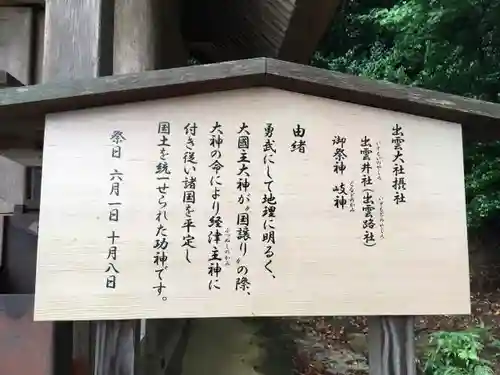 出雲大社摂社
出雲井社(出雲路社)
御祭神 岐神
由緒
勇武にして地理に明るく、
大國主大神が〝国譲り〟の際、
大神の命により経津主神に
付き従い諸国を平定し
国土を統一せられた功神です。
祭日 六月一日 十月八日